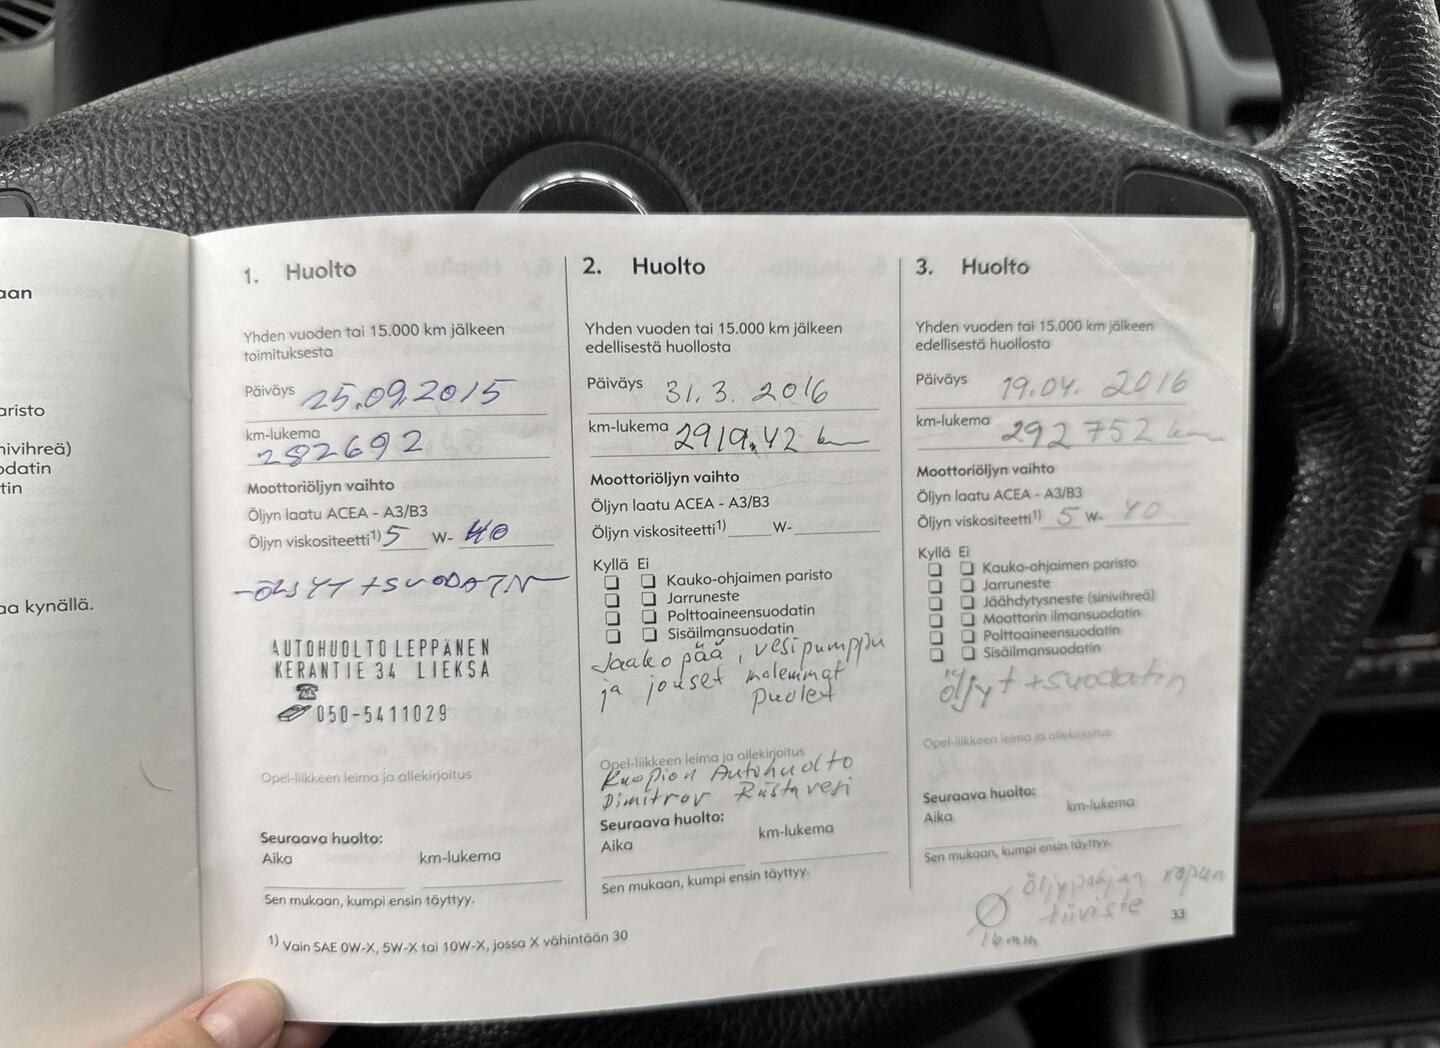 aan
aristo
nivihreä)
odatin
tin
aa kynällä.
1. Huolto
Yhden vuoden tai 15.000 km jälkeen
toimituksesta
Päiväys 25.09.2015
km-lukema
282692
Moottoriöljyn vaihto
Öljyn laatu ACEA - A3/B3
Öljyn viskositeetti1) 5 W- 40
-ÖLJYT +SUODATIN
AUTOHUOLTO LEPPÄNEN
KERANTIE 34 LIEKSA
050-5411029
Opel-liikkeen leima ja allekirjoitus
Seuraava huolto:
Aika km-lukema
Sen mukaan, kumpi ensin täyttyy.
1) Vain SAE 0W-X, 5W-X tai 10W-X, jossa X vähintään 30
2. Huolto
Yhden vuoden tai 15.000 km jälkeen
edellisestä huollosta
Päiväys 31.3. 2016
km-lukema 2919.42 km
Moottoriöljyn vaihto
Öljyn laatu ACEA - A3/B3
Öljyn viskositeetti1) W-
Kyllä Ei
Kauko-ohjaimen paristo
Jarruneste
Polttoaineensuodatin
Sisäilmansuodatin
Jaako pää, vesipumppu
ja jouset molemmat
puolet
Opel-liikkeen leima ja allekirjoitus
Kuopion Autohuolto
Dimitrov Riistavesi
Seuraava huolto:
Aika km-lukema
Sen mukaan, kumpi ensin täyttyy.
3. Huolto
Yhden vuoden tai 15.000 km jälkeen
edellisestä huollosta
Päiväys 19.04. 2016
km-lukema 292752 km
Moottoriöljyn vaihto
Öljyn laatu ACEA - A3/B3
Öljyn viskositeetti1) 5 W- 40
Kyllä Ei
Kauko-ohjaimen paristo
Jarruneste
Jäähdytysneste (sinivihreä)
Moottorin ilmansuodatin
Polttoaineensuodatin
Sisäilmansuodatin
öljyt +suodatin
Opel-liikkeen leima ja allekirjoitus
Seuraava huolto:
Aika km-lukema
Sen mukaan, kumpi ensin täyttyy.
Öljypohjan ropun
tiiviste
16mm
33